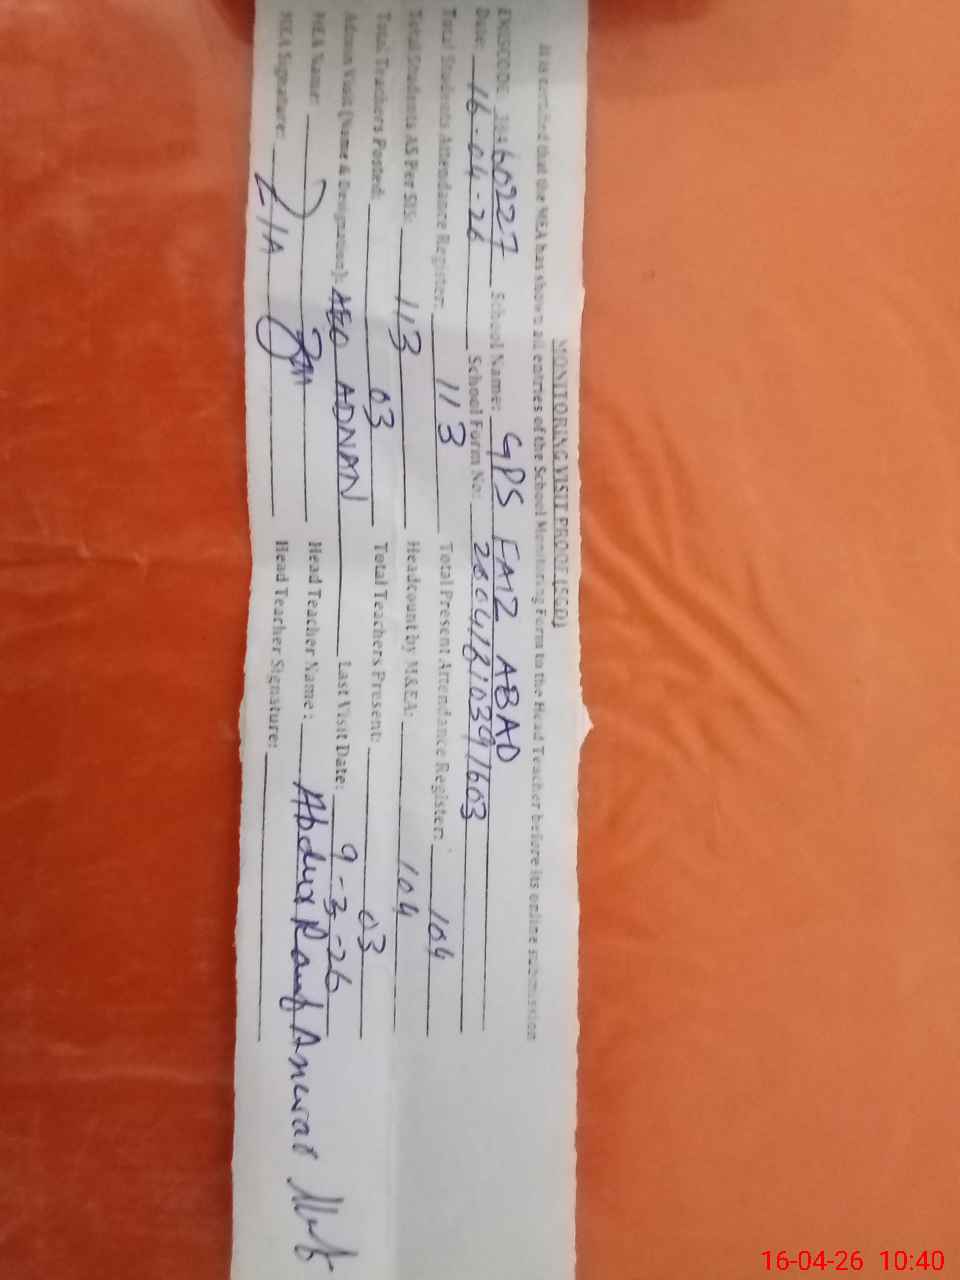 MONITORING VISIT PROOF (SGD)
It is certified that the MEA has shown all entries of the School Monitoring Form to the Head Teacher before its online submission
EMISCODE 38460227 School Name: GPS FAIZ ABAD
Date: 16-04-26 School Form No: 26041610391603
Total Students Attendance Register: 113 Total Present Attendance Register: 104
Total Students AS Per SIS: 113 Headcount by M&EA: 104
Total Teachers Posted: 03 Total Teachers Present: 03
Admin Visit (Name & Designation): AEO ADNAN Last Visit Date: 9-3-26
MEA Name: Head Teacher Name: Abdul Rauf
MEA Signature: Head Teacher Signature:
16-04-26 10:40